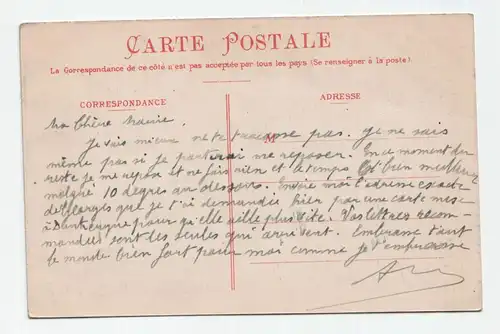 CARTE POSTALE
La Correspondance de ce côté n'est pas acceptée par tous les pays (Se renseigner à la poste).
CORRESPONDANCE
ADRESSE
M
Ma Chère Marie.
Je vais mieux ne te tracasse pas. je ne sais
même pas si je partirai me reposer. En ce moment du
reste je me repose et ne fais rien et le temps est bien meilleur
malgré 10 degres au dessous. Envoie moi l'adresse exacte
de que je t'ai demandée hier par une carte
pour qu'elle aille plus vite. Vos lettres recom-
mandées sont les seules qui arrivent. Embrasse tout
le monde bien fort pour moi comme je t'embrasse